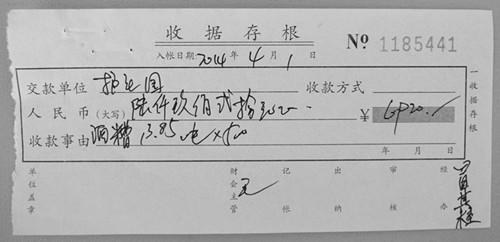 收据存根
入帐日期 2014 年 4 月 1 日
№ 1185441
交款单位 收款方式
人民币(大写) 陆仟玖佰贰拾 ¥ 6920
收款事由 酒糟 13.85 × 500
年 月 日
一收据存根
单位盖章
财会主管
记帐
出纳
审核
经办